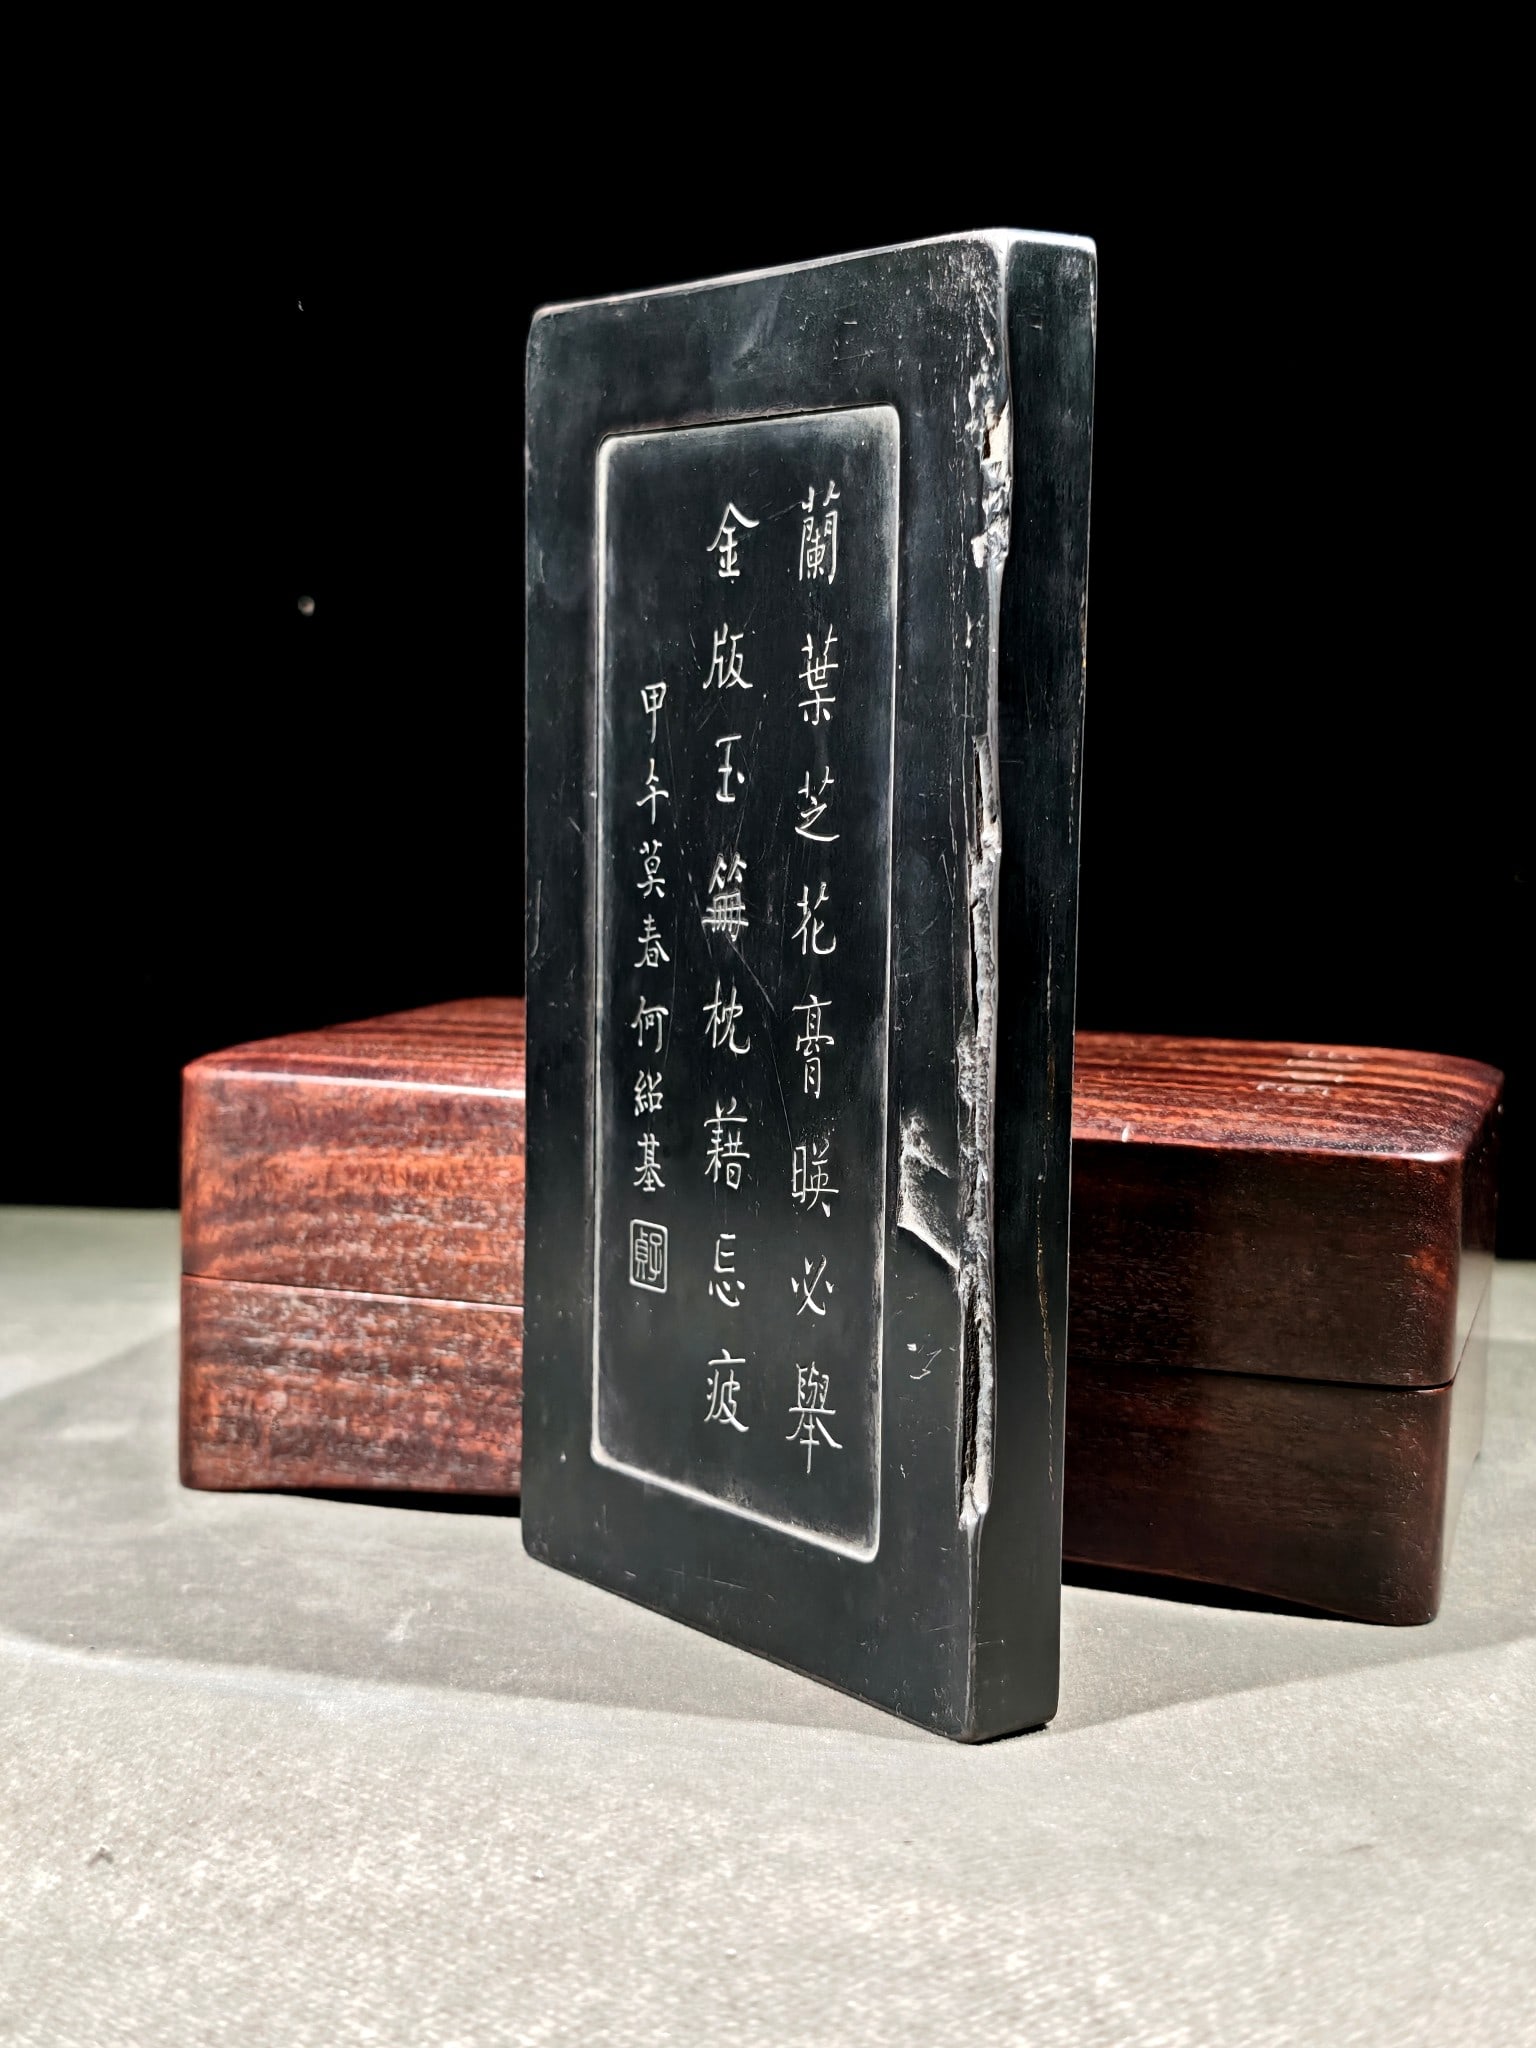 蘭葉芝花膏暎必舉
金版玉篇枕藉忘疲
甲午莫春何紹基